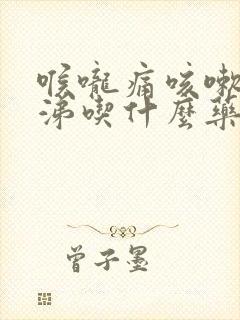 喉嚨痛咳嗽
涕喫什麼藥
曾子墨